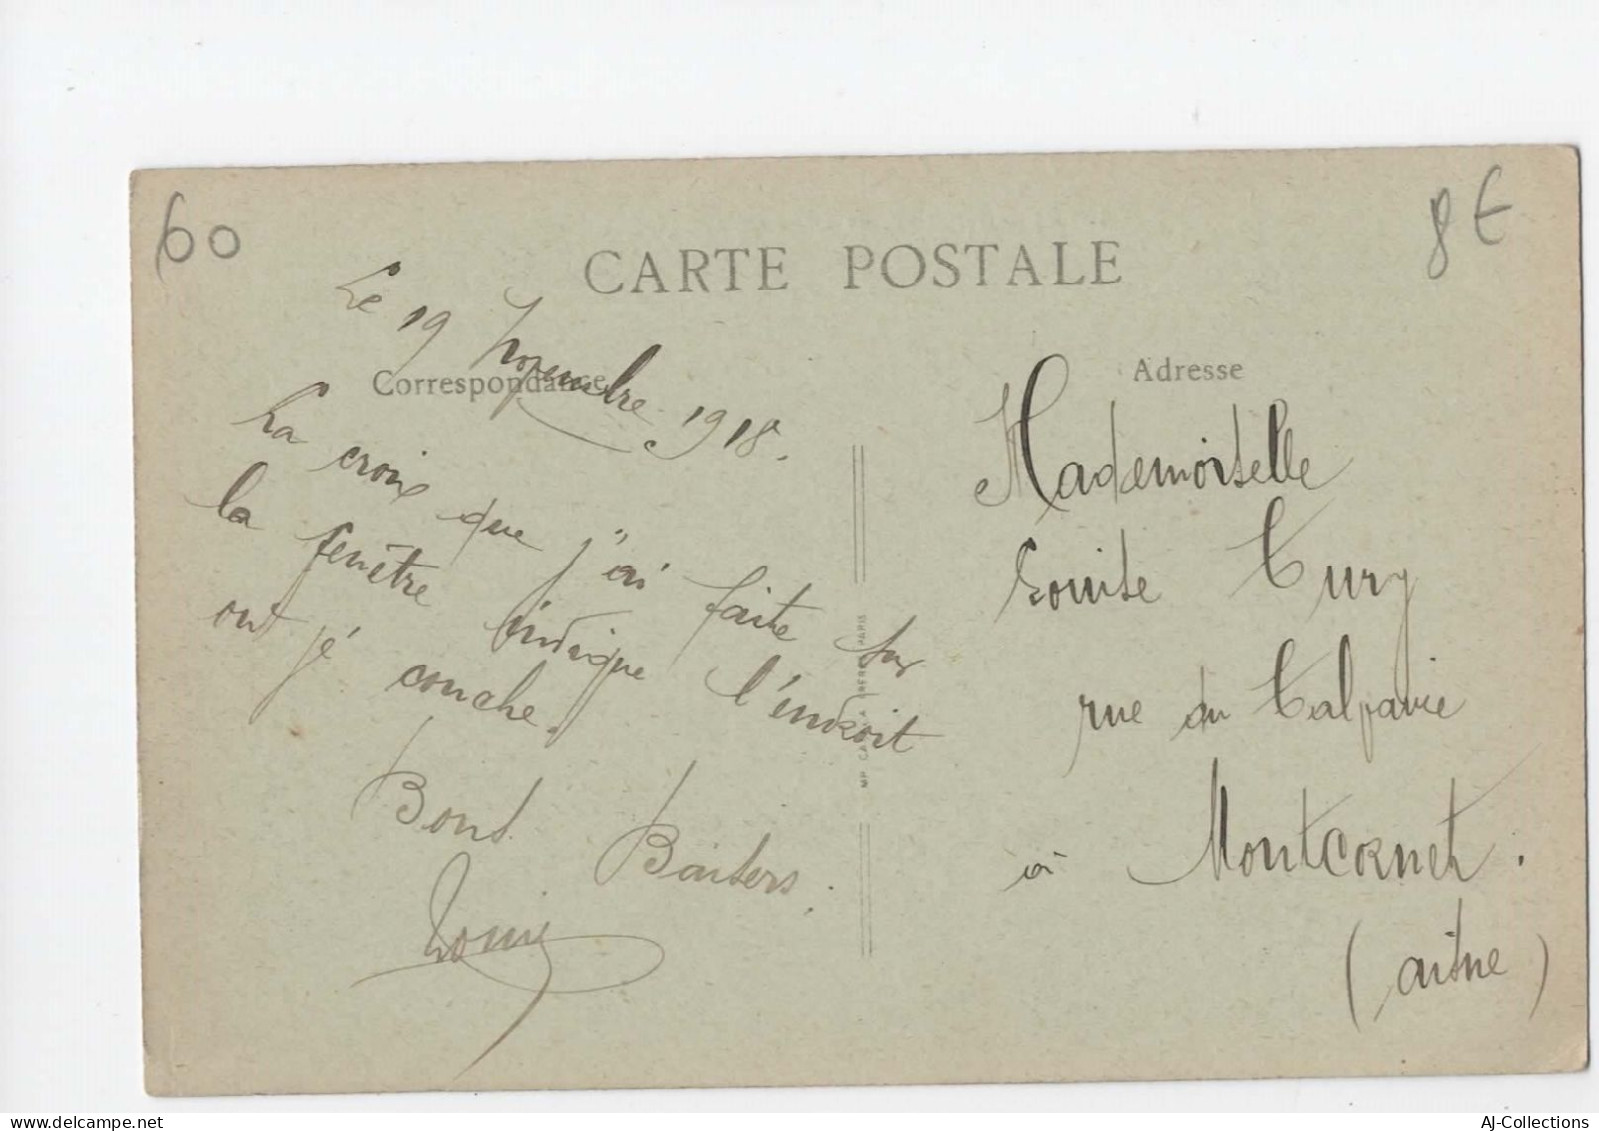 60
8€
CARTE POSTALE
Le 19 Novembre 1918.
Correspondance
La croix que j'ai faite sur
la fenêtre indique l'endroit
ou jé couche.
Bons Baisers.
Louis
Adresse
Mademoiselle
Louise Cury
rue du Calvaire
à Montcornet.
(aisne)
PARIS
AJ-Collections